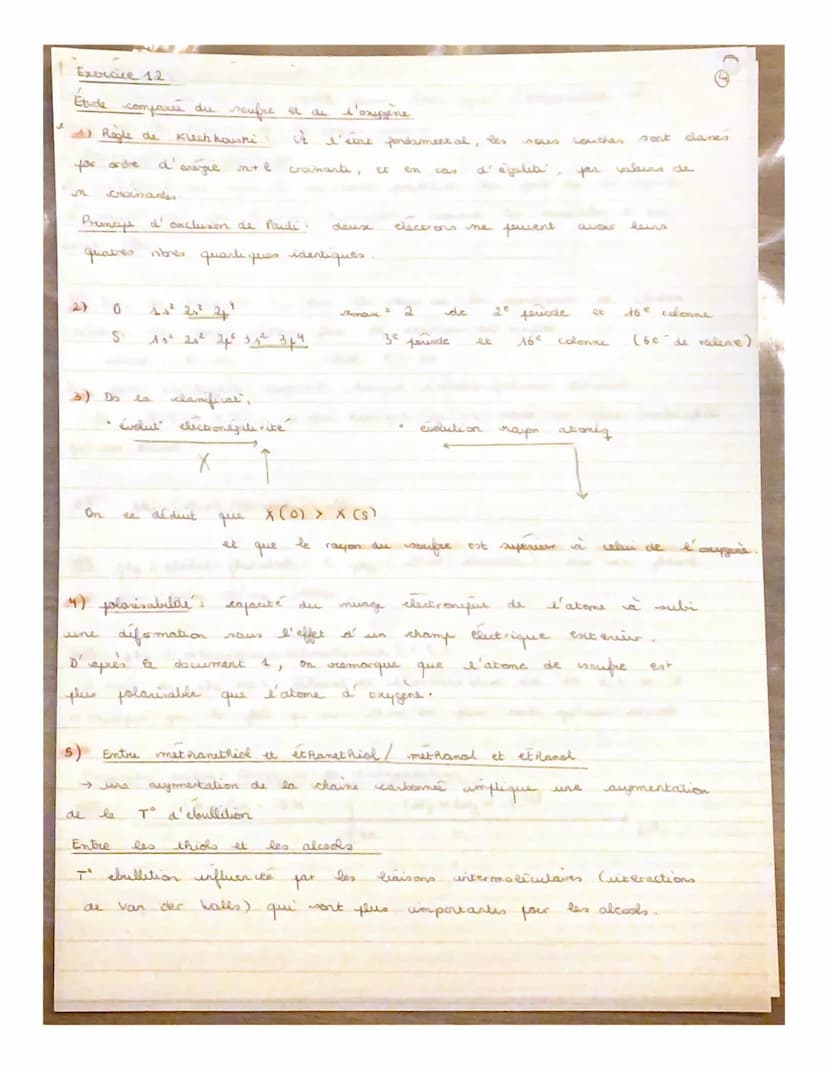 4
Exercice 12
Étude comparée du soufre et de l'oxygène
1) Règle de Klechkowski : À l'état fondamental, les sous couches sont classés
par ordre d'énergie n+l croissante, et en cas d'égalité, par valeurs de
n croissantes.
Principe d'exclusion de Pauli : deux électrons ne peuvent avoir leurs
quatres nbres quantiques identiques.
2) O 1s² 2s² 2p⁴ nmax = 2 de 2e période et 16e colonne
S 1s² 2s² 2p⁶ 3s² 3p⁴ 3e période et 16e colonne (6e⁻ de valence)
3) Ds la classificat°,
• évolut° électronégativité • évolution rayon atomiq
X
On en déduit que X(O) > X(S)
et que le rayon du soufre est supérieur à celui de l'oxygène.
4) polarisabilité : capacité du nuage électronique de l'atome à subi
une déformation sous l'effet d'un champ électrique exterieur.
D'après le document 1, on remarque que l'atome de soufre est
plus polarisable que l'atome d'oxygène.
5) Entre méthanethiol et éthanethiol / méthanol et éthanol
→ une augmentation de la chaîne carbonée implique une augmentation
de la T° d'ébullition
Entre les thiols et les alcools
T° ebullition influencée par les liaisons intermoléculaires (interactions
de Van der Walls) qui sont plus importantes pour les alcools.